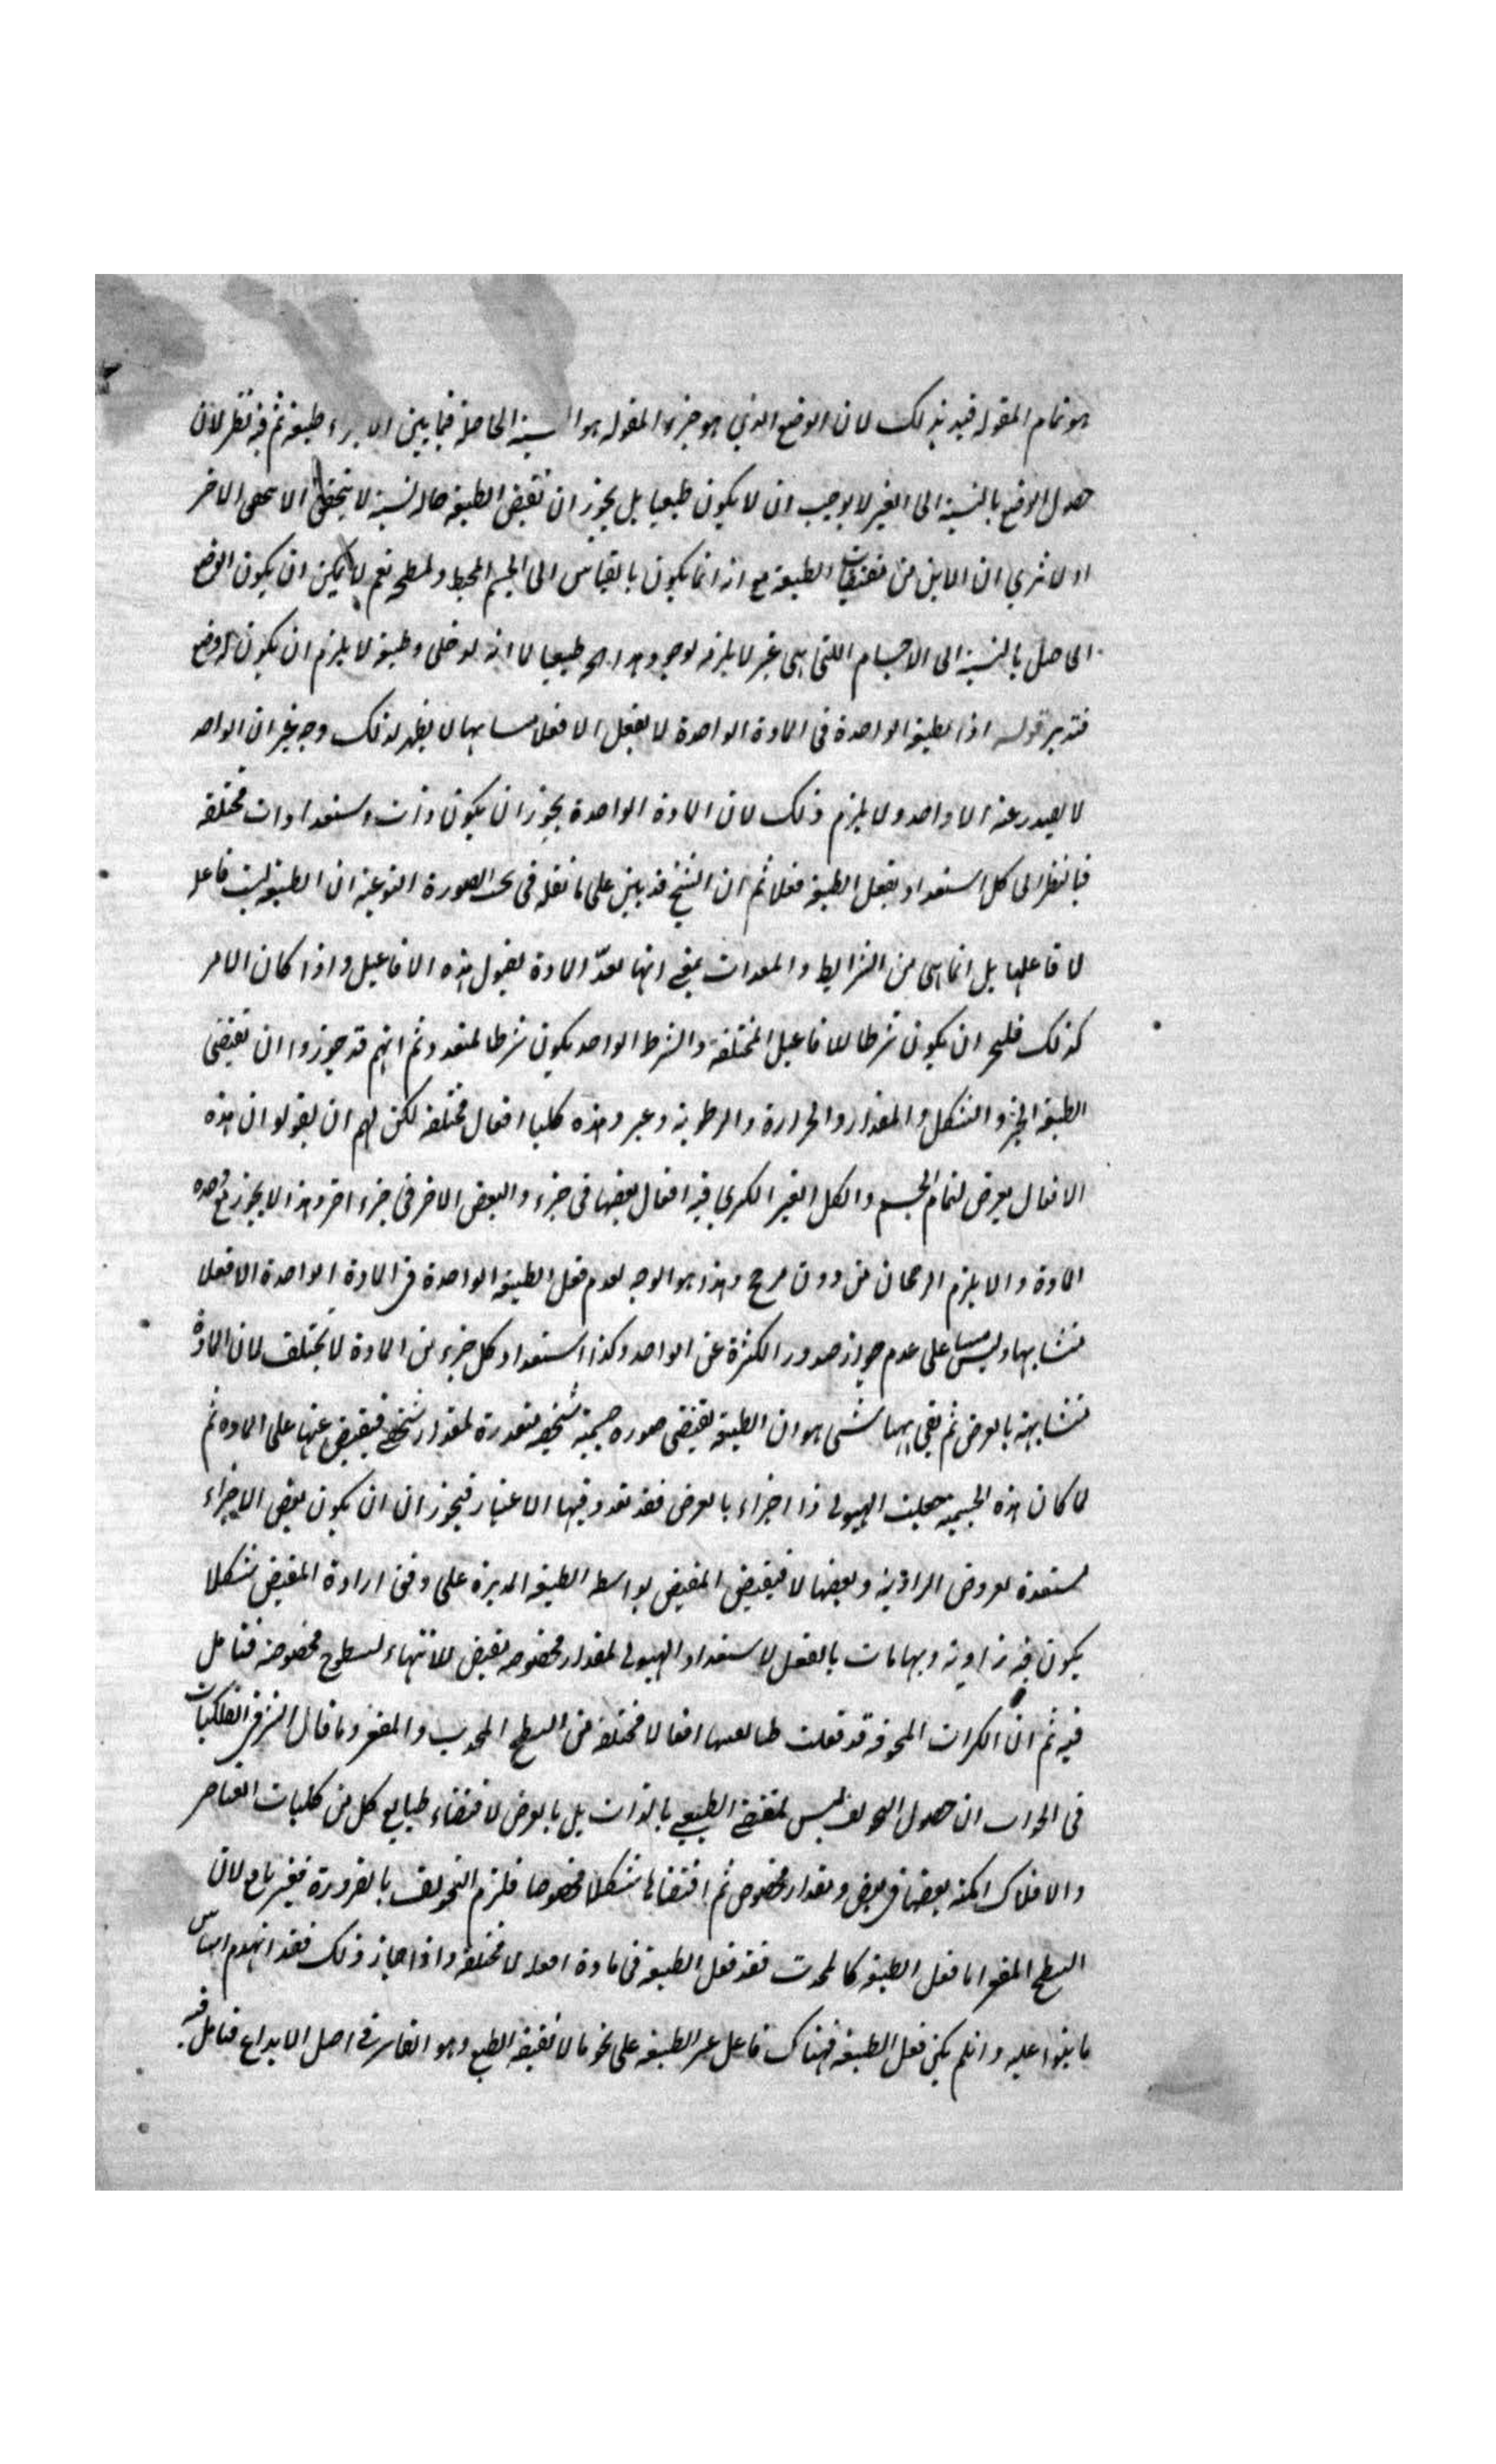 هو تمام المقوله قيد بذلك لان الوضع الذي هو جزء المقوله هو النسبة الحاصلة فيما بين الاجزاء طبيعة ثم فيه نظر لان
حصول الوضع بالنسبة الى الغير لا يوجب ان لا يكون طبعيا بل يجوز ان تقتضى الطبيعة حاله نسبية لا يتحقق الا بتحقق الاخر
اولا ترى ان الاين من مقتضيات الطبيعة مع انه انما يكون بالقياس الى الجسم المحيط ولسطحه نعم لا يمكن ان يكون الوضع
الحاصل بالنسبة الى الاجسام اللتى هى غير لا يلزم لوجود هذا طبيعيا لانه لو خلى وطبعه لا يلزم ان يكون له وضع
فتدبر قوله اذا الطبيعة الواحدة فى المادة الواحدة لا يفعل الا فعلا متشابها لا يظهر لذلك وجه غير ان الواحد
لا يصدر عنه الا واحد ولا يلزم ذلك لان المادة الواحدة يجوز ان يكون ذات استعدادات مختلفه
فبالنظر الى كل استعداد يفعل الطبيعة فعلا ثم ان الشيخ قد بين على ما نقله فى بحث الصورة النوعية ان الطبيعة ليست فاعله
لافاعلها بل انما هى من الشرايط والمعدات بمعنى انها تعدّ المادة لقبول هذه الافاعيل واذا كان الامر
كذلك فليجز ان يكون شرطا للافاعيل المختلفة والشرط الواحد يكون شرطا لمتعدد ثم انهم قد جوزوا ان تقتضى
الطبيعة الحيز والشكل والمقدار والحرارة والرطوبة وغير وهذه كلها افعال مختلفة لكن لهم ان يقولوا ان هذه
الافعال يعرض لتمام الجسم والكل الغير الكرى فيه افعال بعضها فى جزء والبعض الاخر فى جزء اخر وهذا لا يجوز مع وحده
المادة والا يلزم الرجحان من دون مرجح وهذا هو الوجه لعدم فعل الطبيعة الواحدة فى المادة الواحدة الا فعلا
متشابها وليس مبنيا على عدم جواز صدور الكثرة عن الواحد وكذا استعداد كل جزء من المادة لا يختلف لان المادة
متشابهة بالعرض ثم بقى ههنا شىء هو ان الطبيعة تقتضى صوره جسمية شخصية متقدرة لمقدار شخصى فيفيض عنها على الماده ثم
لما كان هذه الجسمية جعلت الهيولى ذا اجزاء بالعرض فقد تعدد فيها الاعتبار فيجوز ان ان يكون بعض الاجزاء
مستعدة لعروض الزاوية وبعضها لا فيفيض المفيض بواسطه الطبيعة المدبرة على وفق ارادة المفيض شكلا
يكون فيه زاوية ونهايات بالفعل لاستعداد الهيولى لمقدار مخصوصه تقتضى للانتهاء لسطوح مخصوصة فتامل
فيه ثم ان الكرات المجوفه قد فعلت طبائعها افعالا مختلفة من السطح المحدب والمقعر وما قال الشيخ فى الفلكيات
فى الجواب ان حصول التجويف ليس لمقتضى الطبيعى بالذات بل بالعرض لاقتضاء طبايع كل من كليات العناصر
والافلاك امكنه بعضها فى بعض ومقدار مخصوص ثم اقتضائها شكلا مخصوصا فلزم التجويف بالضرورة فغير نافع لان
السطح المقعر اما فعل الطبيعة كالمحدب فقد فعل الطبيعة فى مادة افعالا مختلفة واذا جاز ذلك فقد انهدم اساس
ما بنوا عليه وان لم يكن فعل الطبيعة فهناك فاعل غير الطبيعه على نحو ما لا تقتضيه الطبع وهو القاسر فى اصل الابداع فتامل فيه